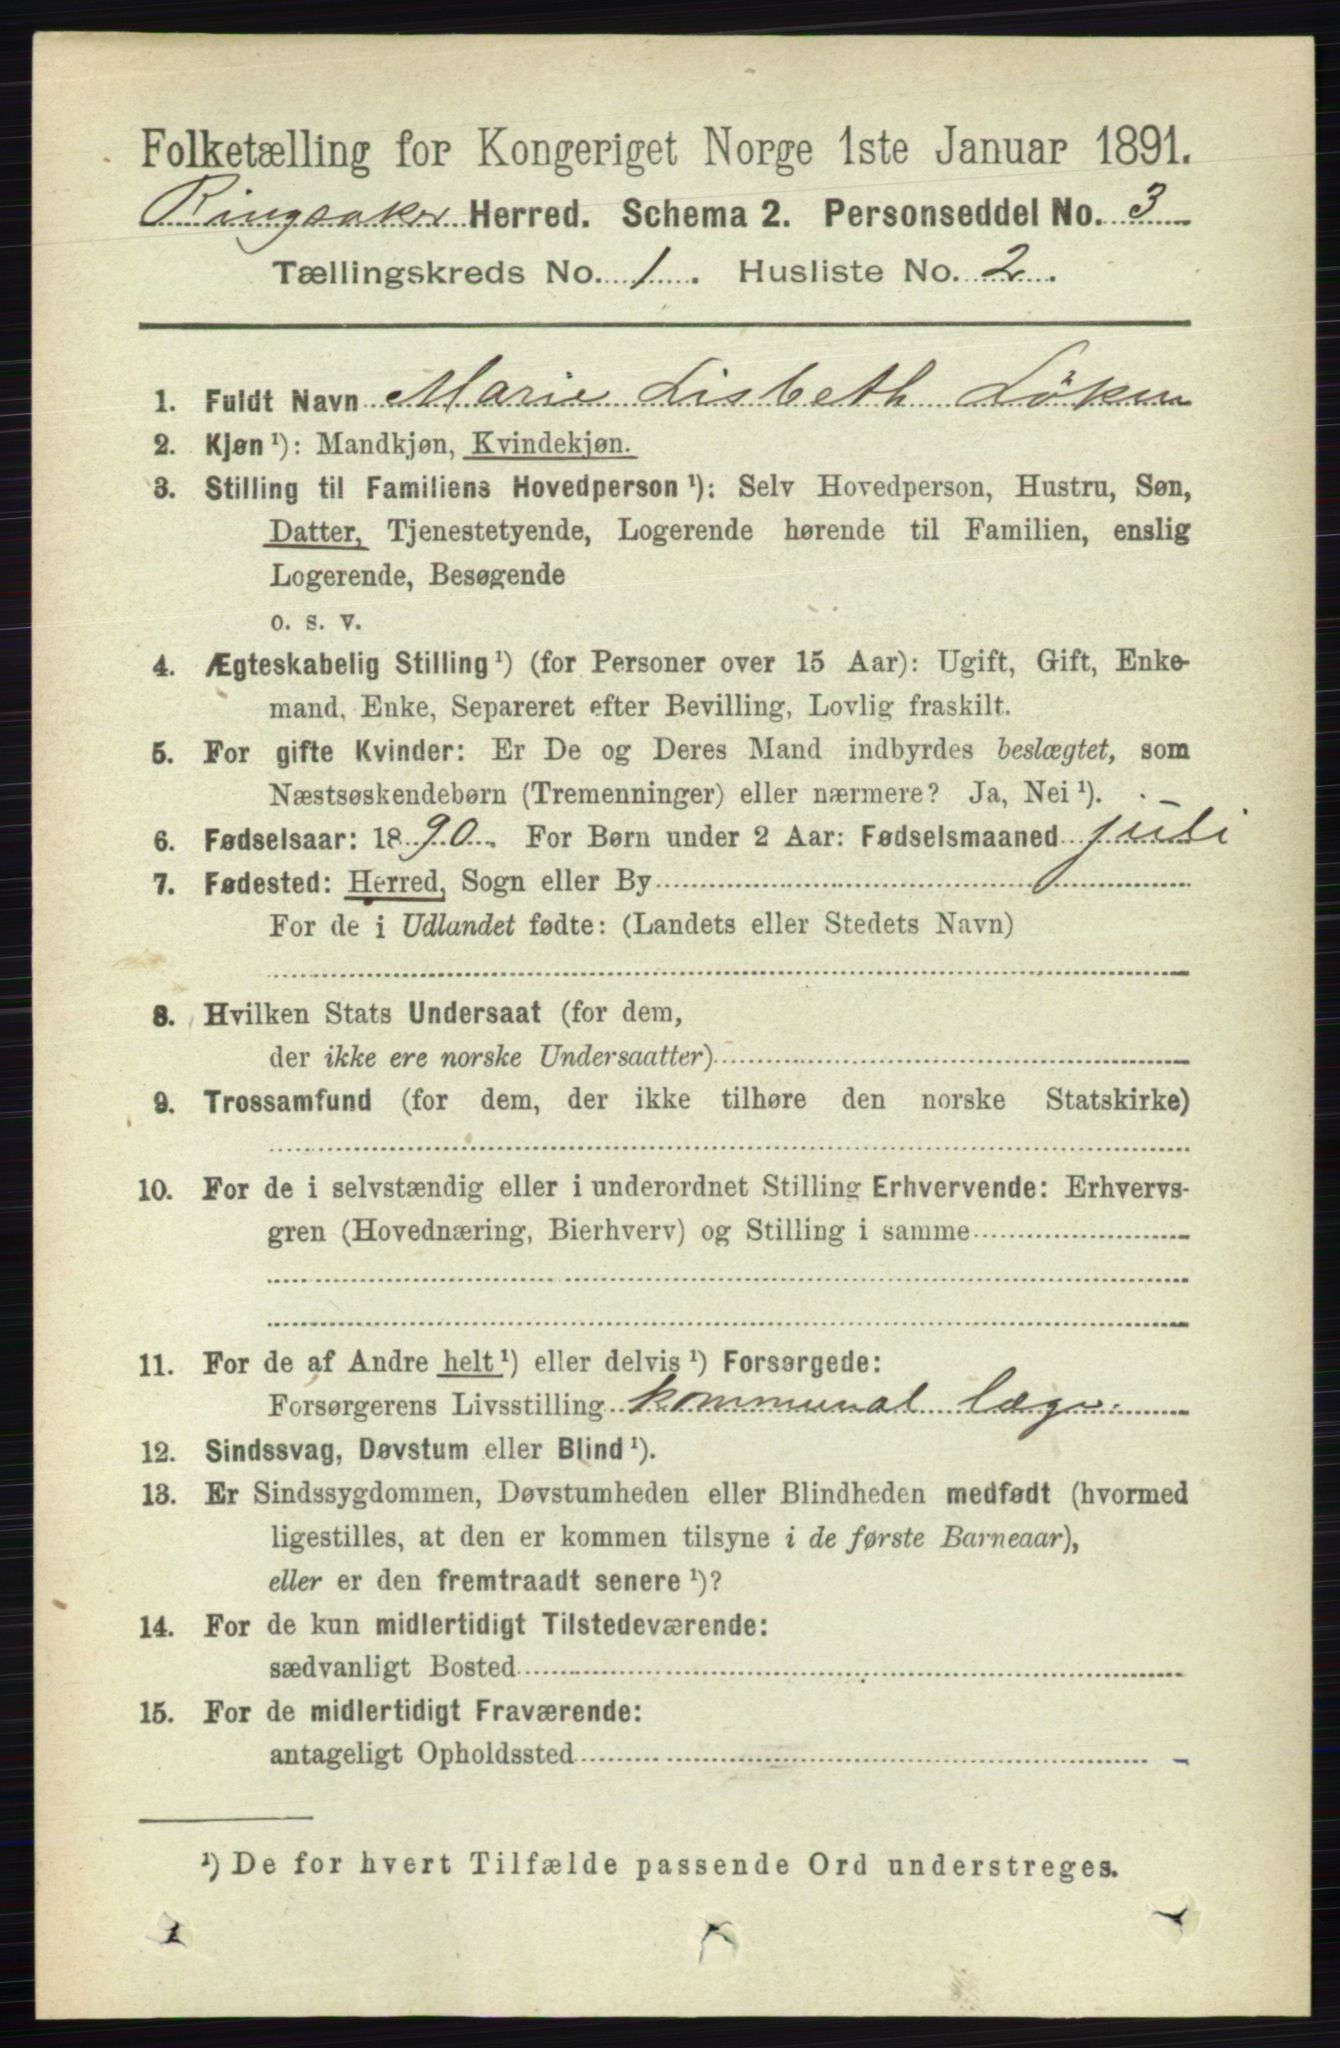 Folketælling for Kongeriget Norge 1ste Januar 1891.
Ringsaker Herred. Schema 2. Personseddel No. 3
Tællingskreds No. 1. Husliste No. 2.
1. Fuldt Navn Marie Lisbeth Löken
2. Kjøn ¹): Mandkjøn, Kvindekjøn.
3. Stilling til Familiens Hovedperson ¹): Selv Hovedperson, Hustru, Søn,
Datter, Tjenestetyende, Logerende hørende til Familien, enslig
Logerende, Besøgende
o. s. v.
4. Ægteskabelig Stilling ¹) (for Personer over 15 Aar): Ugift, Gift, Enke-
mand, Enke, Separeret efter Bevilling, Lovlig fraskilt.
5. For gifte Kvinder: Er De og Deres Mand indbyrdes beslægtet, som
Næstsøskendebørn (Tremenninger) eller nærmere? Ja, Nei ¹).
6. Fødselsaar: 1890. For Børn under 2 Aar: Fødselsmaaned juli
7. Fødested: Herred, Sogn eller By
For de i Udlandet fødte: (Landets eller Stedets Navn)
8. Hvilken Stats Undersaat (for dem,
der ikke ere norske Undersaatter)
9. Trossamfund (for dem, der ikke tilhøre den norske Statskirke)
10. For de i selvstændig eller i underordnet Stilling Erhvervende: Erhvervs-
gren (Hovednæring, Bierhverv) og Stilling i samme
11. For de af Andre helt ¹) eller delvis ¹) Forsørgede:
Forsørgerens Livsstilling kommunal læge.
12. Sindssvag, Døvstum eller Blind ¹).
13. Er Sindssygdommen, Døvstumheden eller Blindheden medfødt (hvormed
ligestilles, at den er kommen tilsyne i de første Barneaar),
eller er den fremtraadt senere ¹)?
14. For de kun midlertidigt Tilstedeværende:
sædvanligt Bosted
15. For de midlertidigt Fraværende:
antageligt Opholdssted
¹) De for hvert Tilfælde passende Ord understreges.